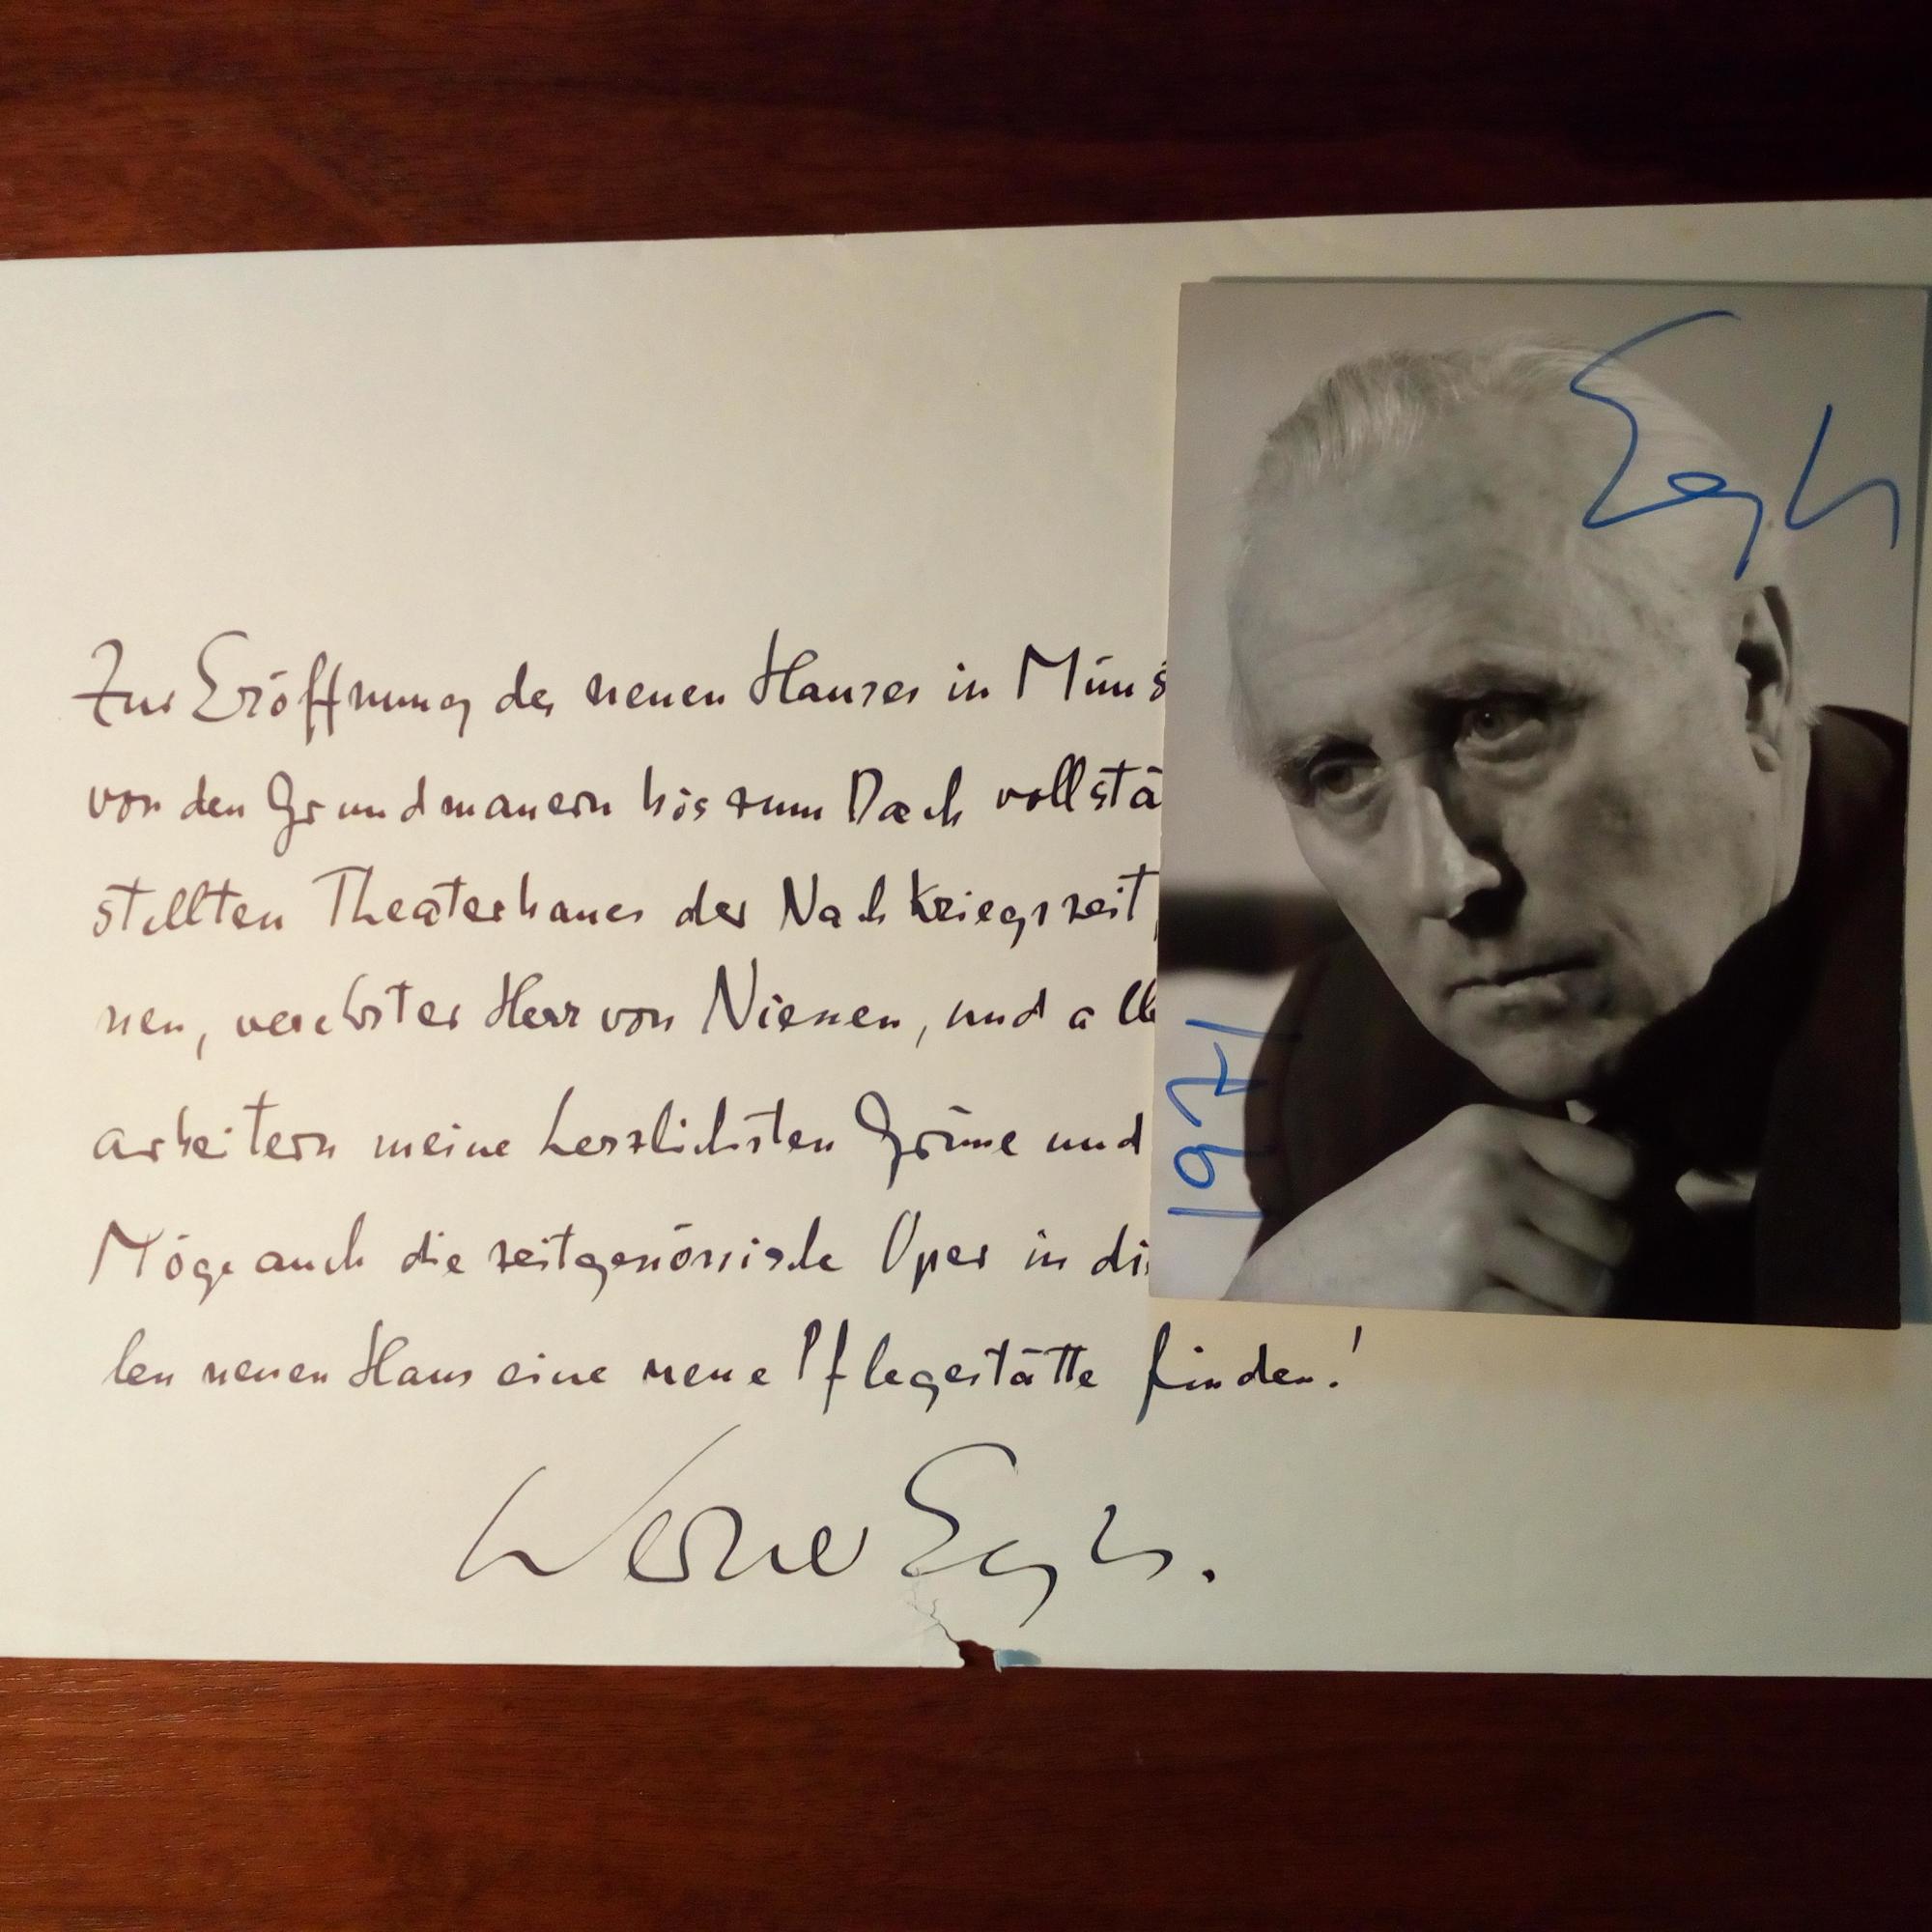 Zur Eröffnung des neuen Hauses in Müns
von den Grundmauern bis zum Dach vollstä
stellten Theaterbaues der Nachkriegszeit,
nen, verehrter Herr von Niessen, und alle
arbeitern meine herzlichsten Grüsse und
Möge auch die zeitgenössische Oper in die
len neuen Haus eine neue Pflegestätte finden!
Werner Egk.
Egk
1971